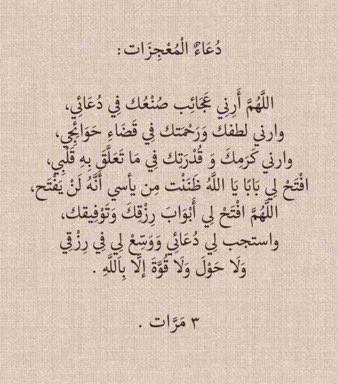 دُعَاءٌ الْمُعْجِزَات:
اللَّهُمَّ أَرِنِي عَجَائِب صُنْعُك فِي دُعَائِي،
وارني لطفك وَرَحْمَتك فِي قَضَاءِ حَوَائِجِي،
وارني كَرَمِكَ وَ قُدْرَتِك فِي مَا تَعَلَّقَ بِهِ قَلْبِي،
افْتَحْ لِي بَابًا يَا اللَّهُ ظَنَنْت مِن يأسي أَنَّهُ لَنْ يَفْتَح،
اللَّهُمَّ افْتَحْ لِي أَبْوَابَ رِزْقِكَ وَتَوْفِيقك،
واستجب لِي دُعَائِي وَوَسِّعْ لِي فِي رِزْقِي
وَلَا حَوْلَ وَلَا قُوَّةَ إلَّا بِاَللَّهِ .
٣ مَرَّات .